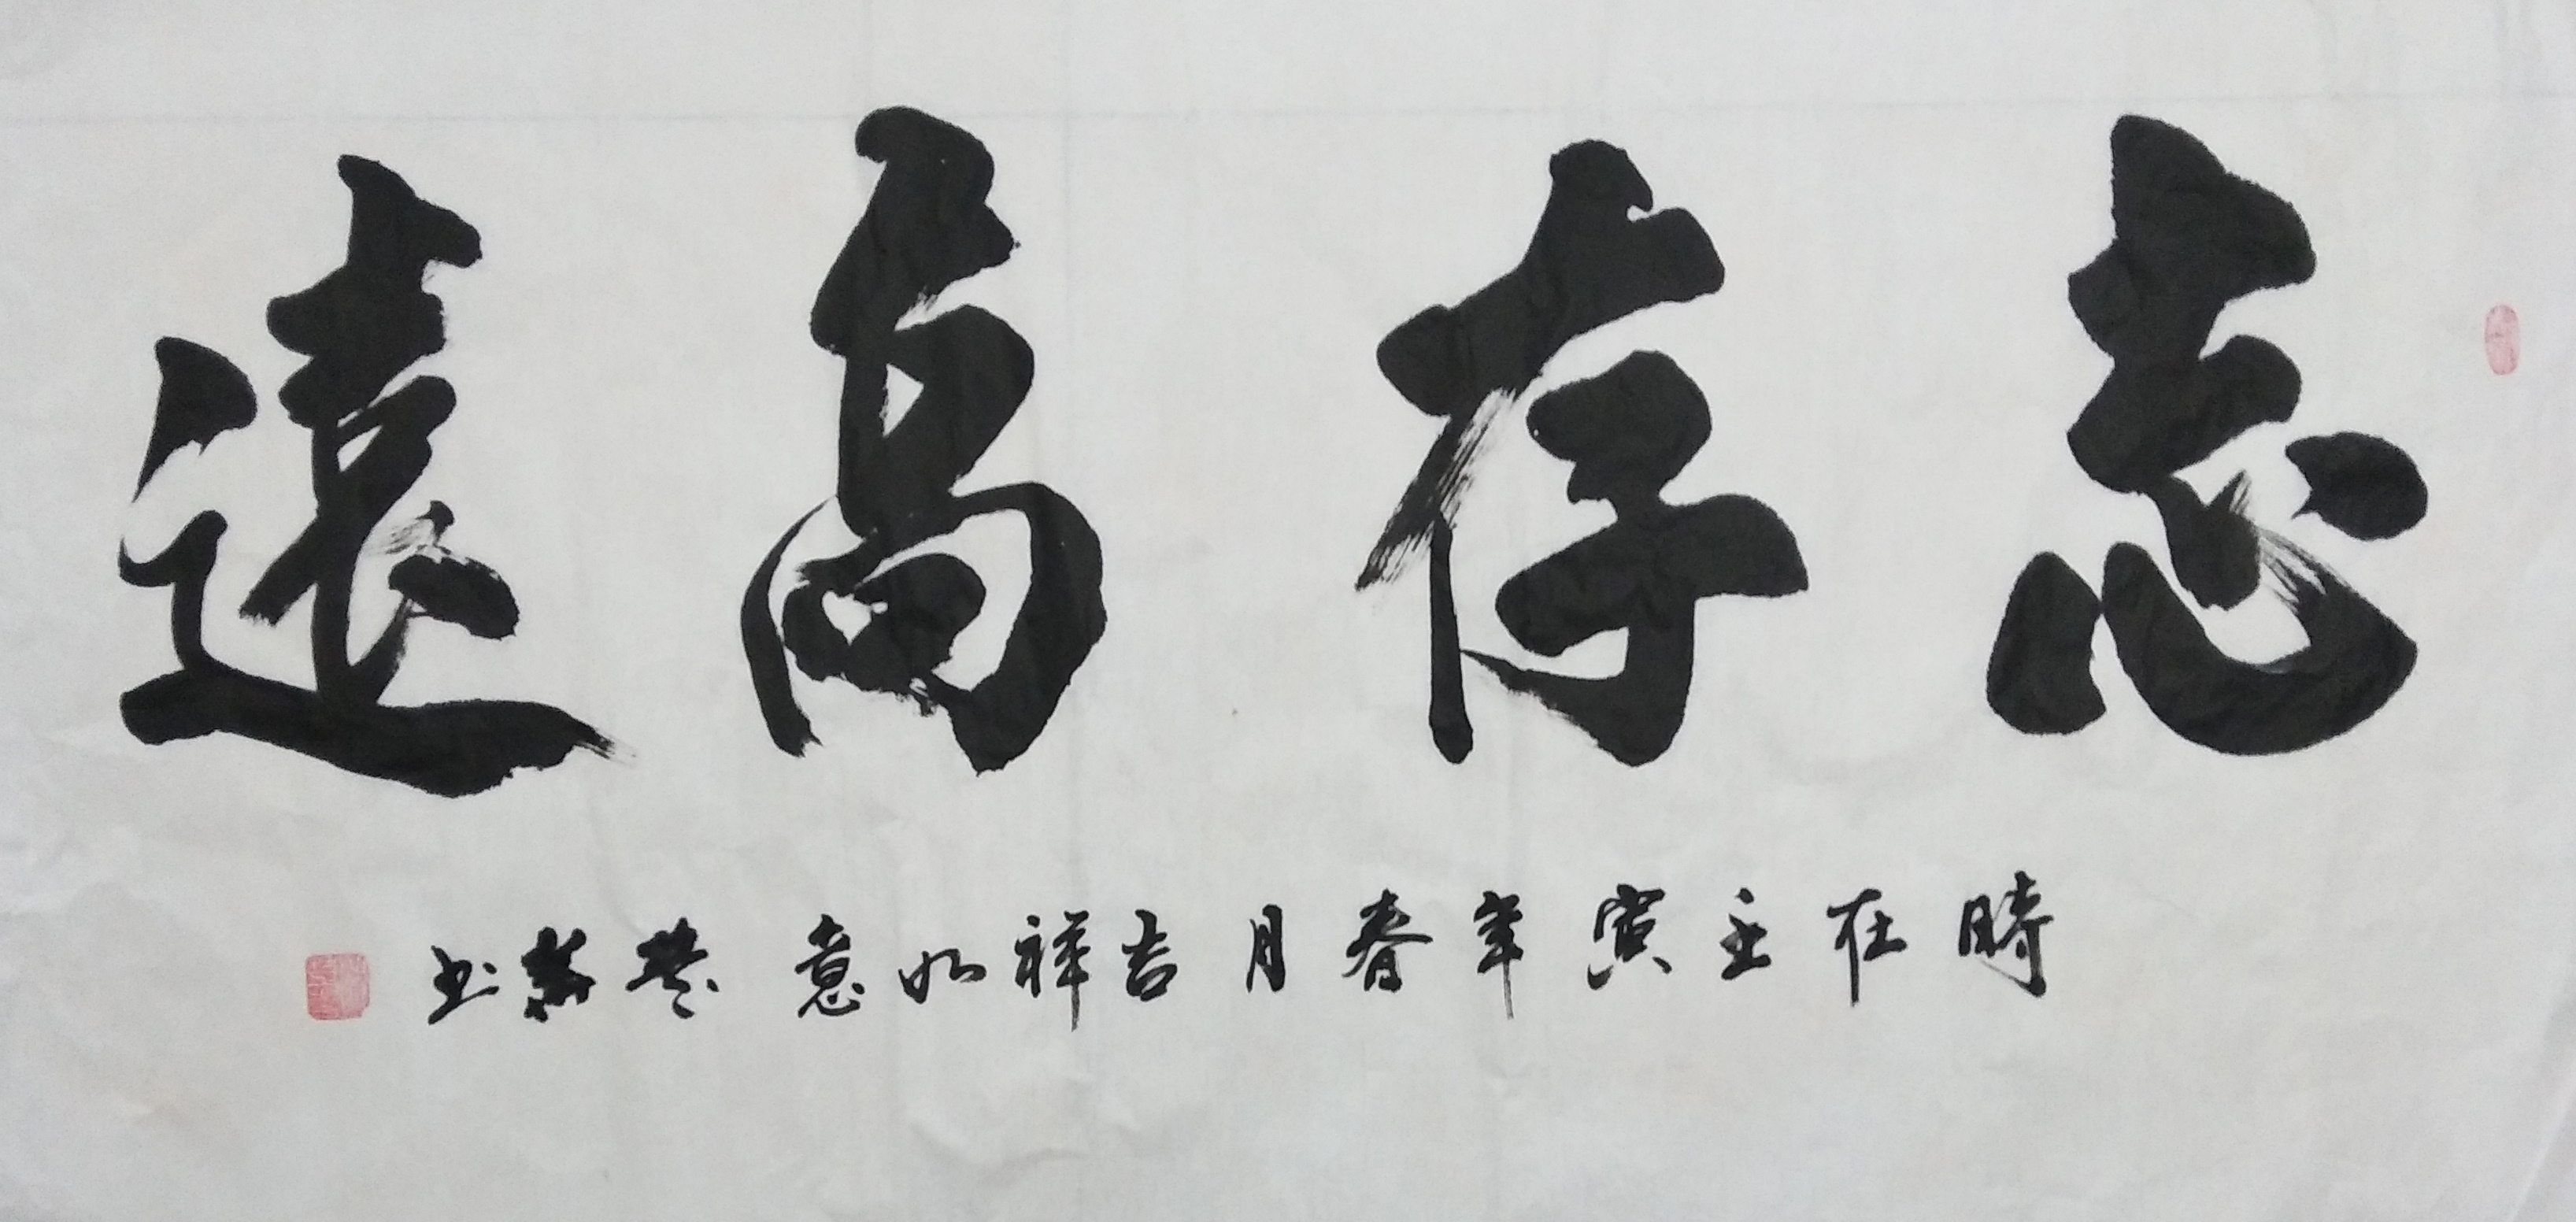 志存高遠
時在壬寅年春月吉祥如意 書